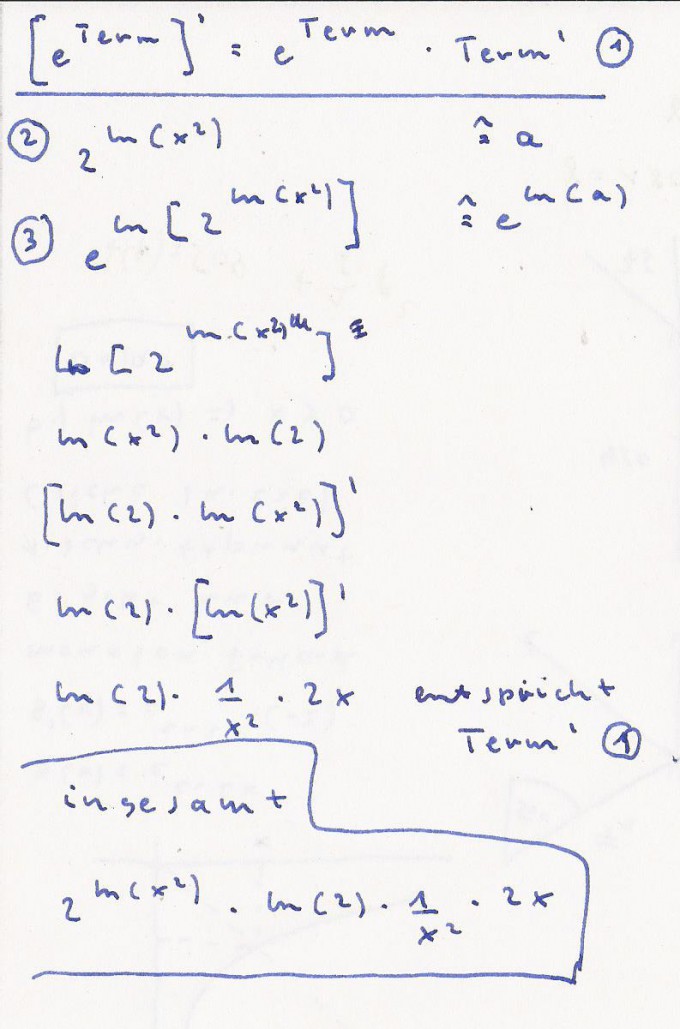 [e^Term]' = e^Term · Term' ①
② 2^ln(x²) ≙ a
③ e^ln[2^ln(x²)] ≙ e^ln(a)
ln[2^ln(x²)]
ln(x²) · ln(2)
[ln(2) · ln(x²)]'
ln(2) · [ln(x²)]'
ln(2) · 1/x² · 2x entspricht
Term' ①
ingesamt
2^ln(x²) · ln(2) · 1/x² · 2x